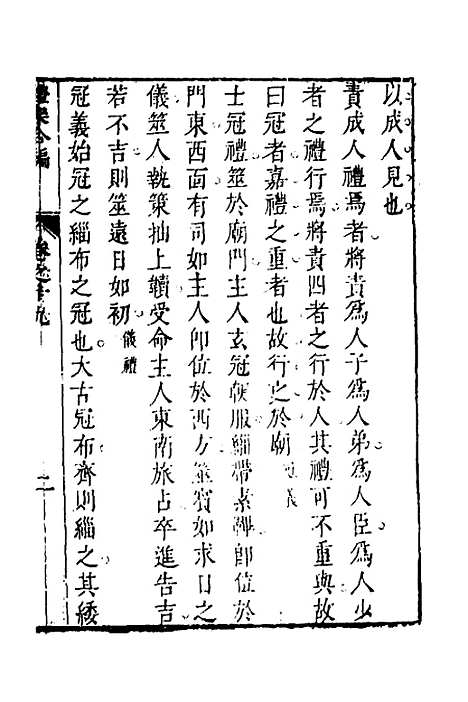 以成人見也
責成人禮焉者將責爲人子爲人弟爲人臣爲人少
者之禮行焉將責四者之行於人其禮可不重與故
曰冠者嘉禮之重者也故行之於廟 冠義
士冠禮筮於廟門主人玄冠朝服緇帶素韠即位於
門東西面有司如主人即位於西方筮賓如求日之
儀筮人執筴抽上韇受命主人東南旅占卒進告吉
若不吉則筮遠日如初 儀禮
冠義始冠之緇布之冠也大古冠布齊則緇之其緌
禮樂合編 卷之十九 二